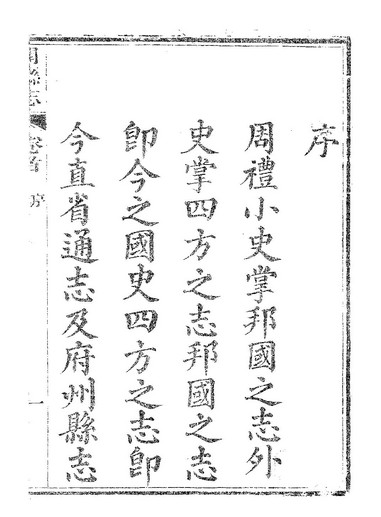 序
周禮小史掌邦國之志外
史掌四方之志邦國之志
卽今之國史四方之志卽
今直省通志及府州縣志
縣志
卷首
序
一